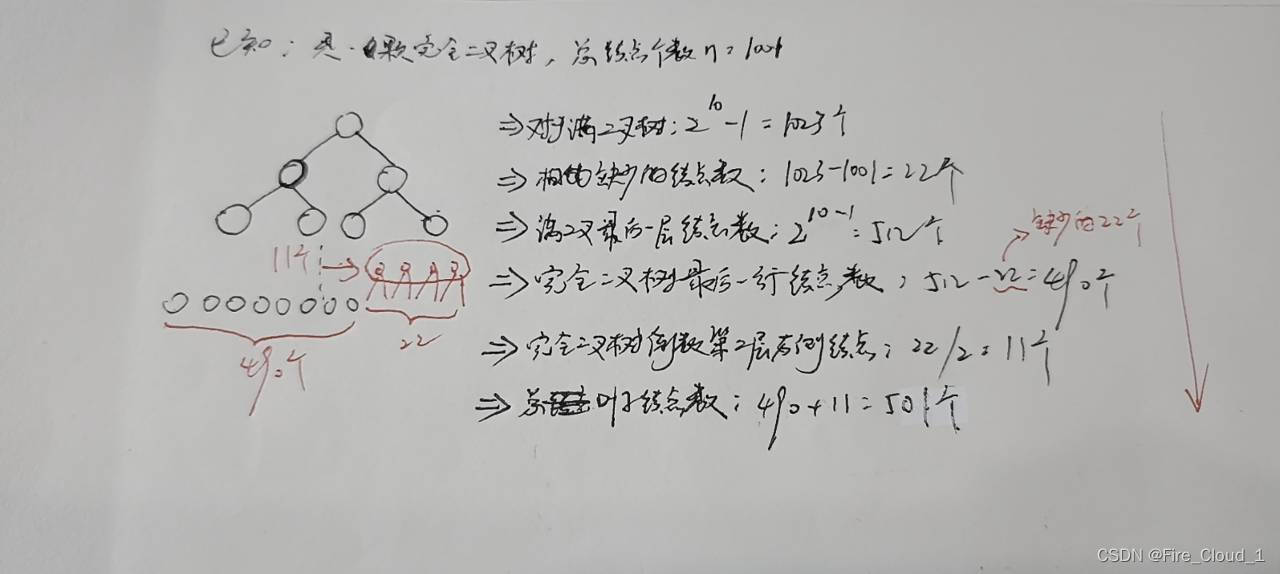 已知：是一颗完全二叉树，总结点个数n=1001
⇒对于满二叉树：2^10-1=1023个
⇒相比缺少的结点数：1023-1001=22个
⇒满二叉最后一层结点数：2^10-1=512个
缺少的22个
⇒完全二叉树最后一行结点数：512-22=490个
11个
490个
22
⇒完全二叉树倒数第2层右侧结点：22/2=11个
⇒总叶子结点数：490+11=501个
CSDN @Fire_Cloud_1